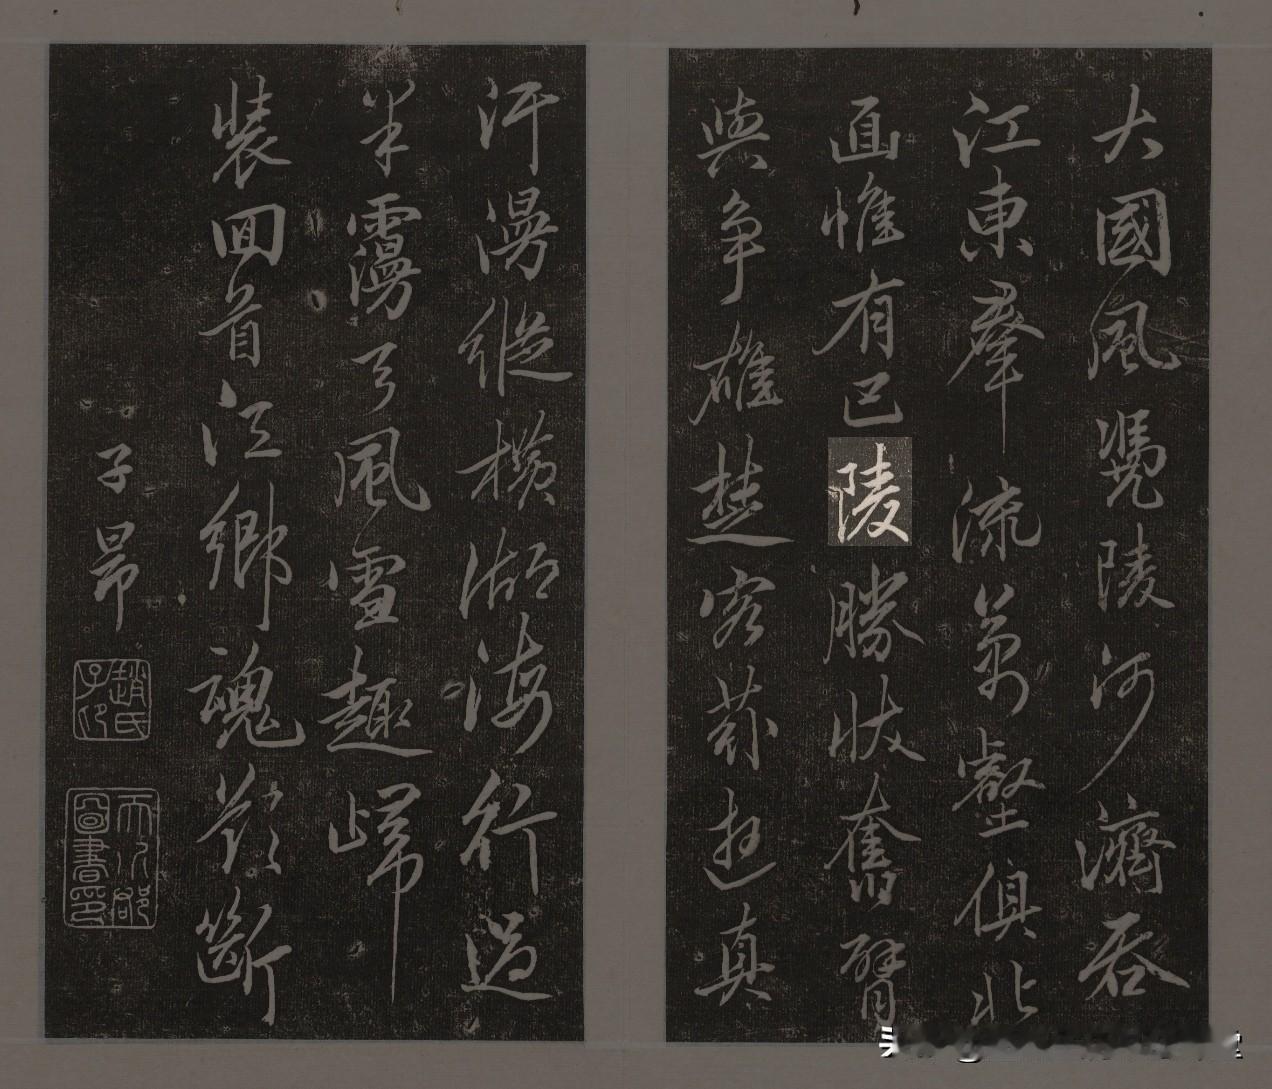 大國風凴陵河濟吞
江東羣流萬壑俱北
面惟有巴陵勝狀奮臂
與争雄楚客荪遊真
汗漫縱橫湖海行過
半霭弓風雪趣歸
裝回首江鄉魂欲斷
子昻
趙氏子印
天水郡圖書印